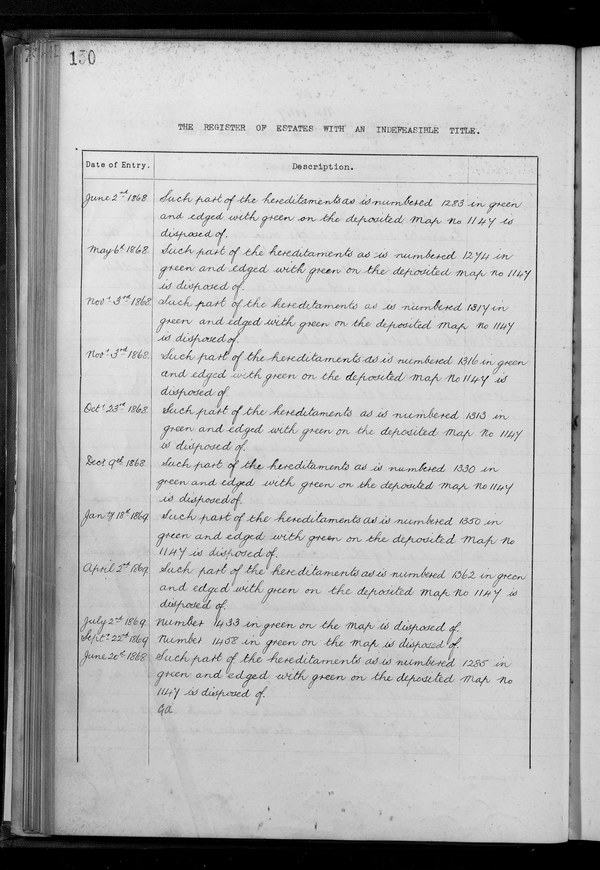 130
THE REGISTER OF ESTATES WITH AN INDEFEASIBLE TITLE.
Date of Entry. Description.
June 2nd 1868 Such part of the hereditaments as is numbered 1283 in green
and edged with green on the deposited Map No 1147 is
disposed of.
May 6th 1868 Such part of the hereditaments as is numbered 1274 in
green and edged with green on the deposited Map No 1147
is disposed of.
Novr 3rd 1868 Such part of the hereditaments as is numbered 1317 in
green and edged with green on the deposited Map No 1147
is disposed of.
Novr 3rd 1868 Such part of the hereditaments as is numbered 1316 in green
and edged with green on the deposited Map No 1147 is
disposed of.
Octr 23rd 1868 Such part of the hereditaments as is numbered 1313 in
green and edged with green on the deposited Map No 1147
is disposed of.
Decr 9th 1868 Such part of the hereditaments as is numbered 1330 in
green and edged with green on the deposited Map No 1147
is disposed of.
Jany 18th 1869 Such part of the hereditaments as is numbered 1350 in
green and edged with green on the deposited Map No
1147 is disposed of.
April 2nd 1869 Such part of the hereditaments as is numbered 1362 in green
and edged with green on the deposited Map No 1147 is
disposed of.
July 2nd 1869 Number 1433 in green on the Map is disposed of.
Septr 22nd 1869 Number 1458 in green on the Map is disposed of.
June 20th 1868 Such part of the hereditaments as is numbered 1285 in
green and edged with green on the deposited Map No
1147 is disposed of
GA